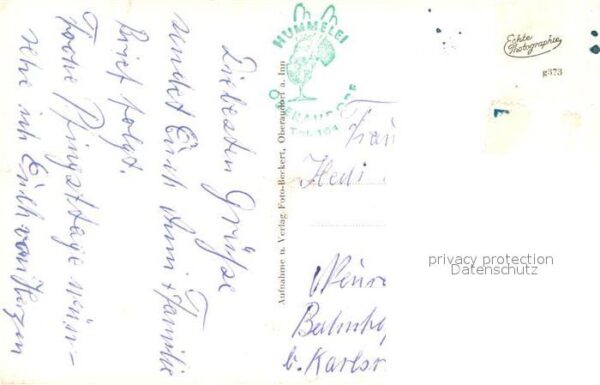 Liebesten Grüße
sendet Euch Anni + Familie
Brief folgt.
Frohe Pfingsttage wün-
sche ich Euch von Herzen
HUMMELEI
OBERAUDORF
Tel. 164
Aufnahme u. Verlag Foto-Beckert, Oberaudorf a. Inn
Echte
Photographie
g373
Frau
Hedi
Bahnho
b. Karlsr
privacy protection
Datenschutz